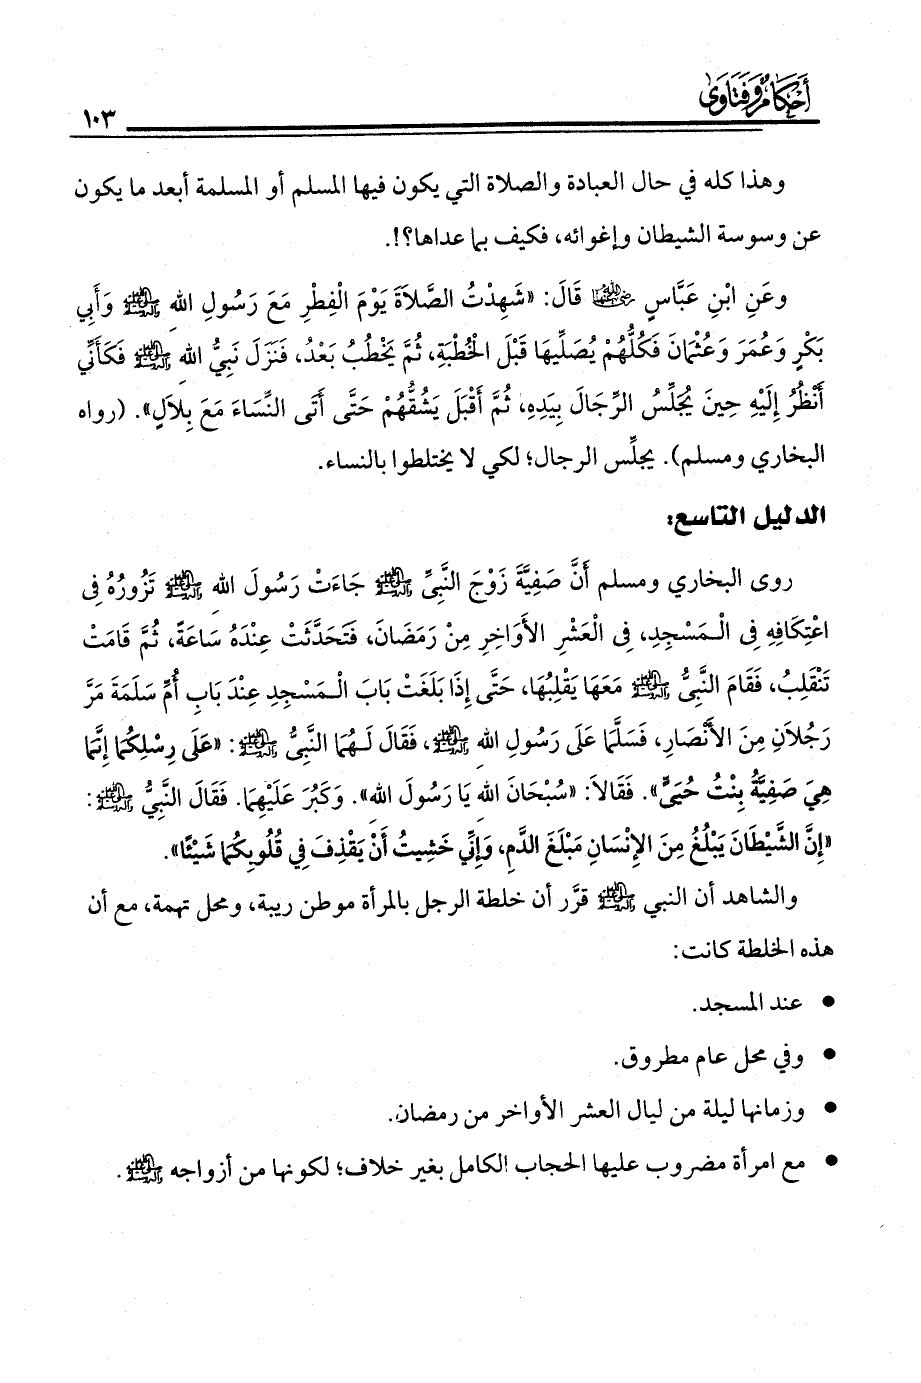 أحكام وفتاوى
١٠٣
وهذا كله في حال العبادة والصلاة التي يكون فيها المسلم أو المسلمة أبعد ما يكون
عن وسوسة الشيطان وإغوائه، فكيف بما عداها؟!.
وعَنِ ابْنِ عَبَّاسٍ رضي الله عنهما قَالَ: «شَهِدْتُ الصَّلَاةَ يَوْمَ الْفِطْرِ مَعَ رَسُولِ اللهِ ﷺ وَأَبِي
بَكْرٍ وَعُمَرَ وَعُثْمَانَ فَكُلُّهُمْ يُصَلِّيهَا قَبْلَ الْخُطْبَةِ، ثُمَّ يَخْطُبُ بَعْدُ، فَنَزَلَ نَبِيُّ اللهِ ﷺ فَكَأَنِّي
أَنْظُرُ إِلَيْهِ حِينَ يُجَلِّسُ الرِّجَالَ بِيَدِهِ، ثُمَّ أَقْبَلَ يَشُقُّهُمْ حَتَّى أَتَى النِّسَاءَ مَعَ بِلَالٍ». (رواه
البخاري ومسلم). يجلِّس الرجال؛ لكي لا يختلطوا بالنساء.
الدليل التاسع:
روى البخاري ومسلم أَنَّ صَفِيَّةَ زَوْجَ النَّبِيِّ ﷺ جَاءَتْ رَسُولَ اللهِ ﷺ تَزُورُهُ فِى
اعْتِكَافِهِ فِى الْـمَسْجِدِ، فِى الْعَشْرِ الأَوَاخِرِ مِنْ رَمَضَانَ، فَتَحَدَّثَتْ عِنْدَهُ سَاعَةً، ثُمَّ قَامَتْ
تَنْقَلِبُ، فَقَامَ النَّبِيُّ ﷺ مَعَهَا يَقْلِبُهَا، حَتَّى إِذَا بَلَغَتْ بَابَ الْـمَسْجِدِ عِنْدَ بَابِ أُمِّ سَلَمَةَ مَرَّ
رَجُلَانِ مِنَ الأَنْصَارِ، فَسَلَّمَا عَلَى رَسُولِ اللهِ ﷺ، فَقَالَ لَـهُمَا النَّبِيُّ ﷺ: «عَلَى رِسْلِكُمَا إِنَّمَا
هِيَ صَفِيَّةُ بِنْتُ حُيَيٍّ». فَقَالَا: «سُبْحَانَ اللهِ يَا رَسُولَ اللهِ». وَكَبُرَ عَلَيْهِمَا. فَقَالَ النَّبِيُّ ﷺ:
«إِنَّ الشَّيْطَانَ يَبْلُغُ مِنَ الإِنْسَانِ مَبْلَغَ الدَّمِ، وَإِنِّي خَشِيتُ أَنْ يَقْذِفَ فِي قُلُوبِكُمَا شَيْئًا».
والشاهد أن النبي ﷺ قرَّر أن خلطة الرجل بالمرأة موطن ريبة، ومحل تهمة، مع أن
هذه الخلطة كانت:
• عند المسجد.
• وفي محل عام مطروق.
• وزمانها ليلة من ليال العشر الأواخر من رمضان.
• مع امرأة مضروب عليها الحجاب الكامل بغير خلاف؛ لكونها من أزواجه ﷺ.